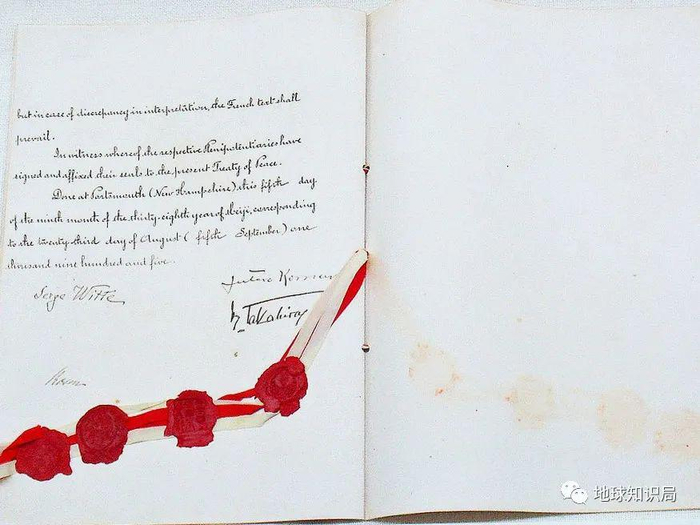 but in case of discrepancy in interpretation, the French text shall
prevail.
In witness whereof, the respective Plenipotentiaries have
signed and affixed their seals to the present Treaty of Peace.
Done at Portsmouth (New Hampshire) this fifth day
of the ninth month of the thirty-eighth year of Meiji, corresponding
to the twenty-third day of August (fifth September) one
thousand nine hundred and five.
Serge Witte
K. Takahira
Rosen
地球知识局